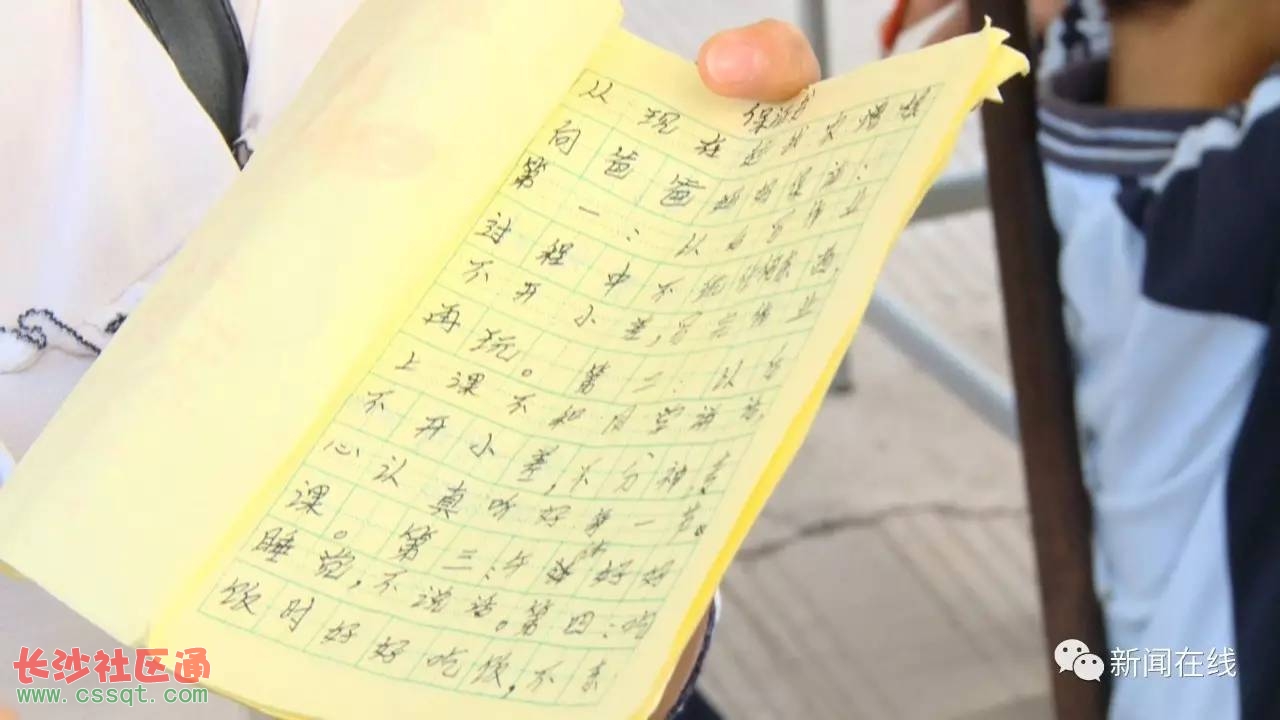 保证书
从现在起我灾
向爸爸妈妈保证：
第一：以后写作业
过程中不玩
不开小差，写完作业
再玩。第二：以后
上课不和同学讲话
不开小差，不分神专
心认真听好每一节
课。第三：午休好好
睡觉，不说话。第四：吃
饭时好好吃饭，不
长沙社区通
www.cssqt.com
新闻在线